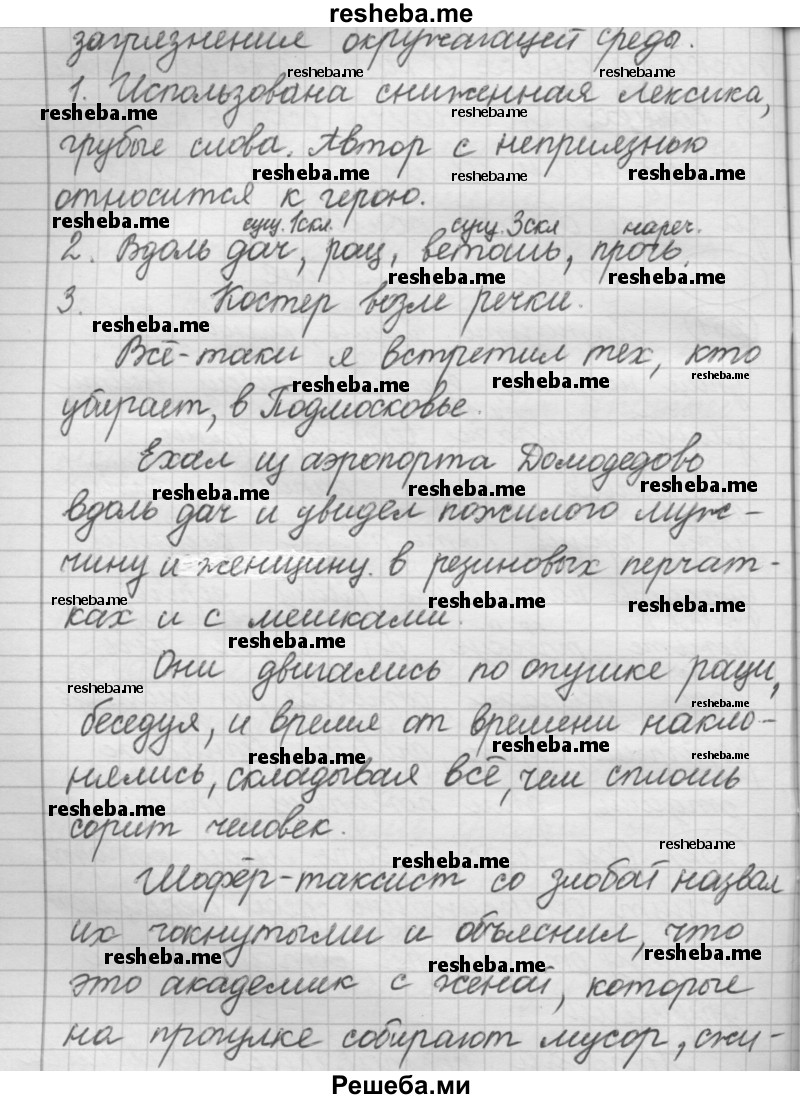 resheba.me
загрязнения окружающей среды.
resheba.me resheba.me
1. Использована сниженная лексика,
resheba.me resheba.me
грубые слова. Автор с неприязнью
resheba.me resheba.me resheba.me
относится к герою.
resheba.me сущ. 1скл. сущ. 3скл нареч.
2. Вдоль дач, рощ, ветошь, прочь.
resheba.me resheba.me
3. Костер возле речки.
resheba.me
Всё-таки я встретил тех, кто
resheba.me resheba.me resheba.me
убирает, в Подмосковье.
Ехал из аэропорта Домодедово
resheba.me resheba.me resheba.me
вдоль дач и увидел пожилого муж-
чину и женщину в резиновых перчат-
resheba.me resheba.me resheba.me
ках и с мешками.
resheba.me
Они двигались по опушке рощи,
resheba.me resheba.me
беседуя, и время от времени накло-
resheba.me resheba.me resheba.me
нялись, складывая всё, чем сплошь
resheba.me
сорит человек.
resheba.me resheba.me
Шофёр-таксист со злобой назвал
их чокнутыми и объяснил, что
resheba.me resheba.me resheba.me
это академик с женой, которые
на прогулке собирают мусор, сжи-
Решеба.ми